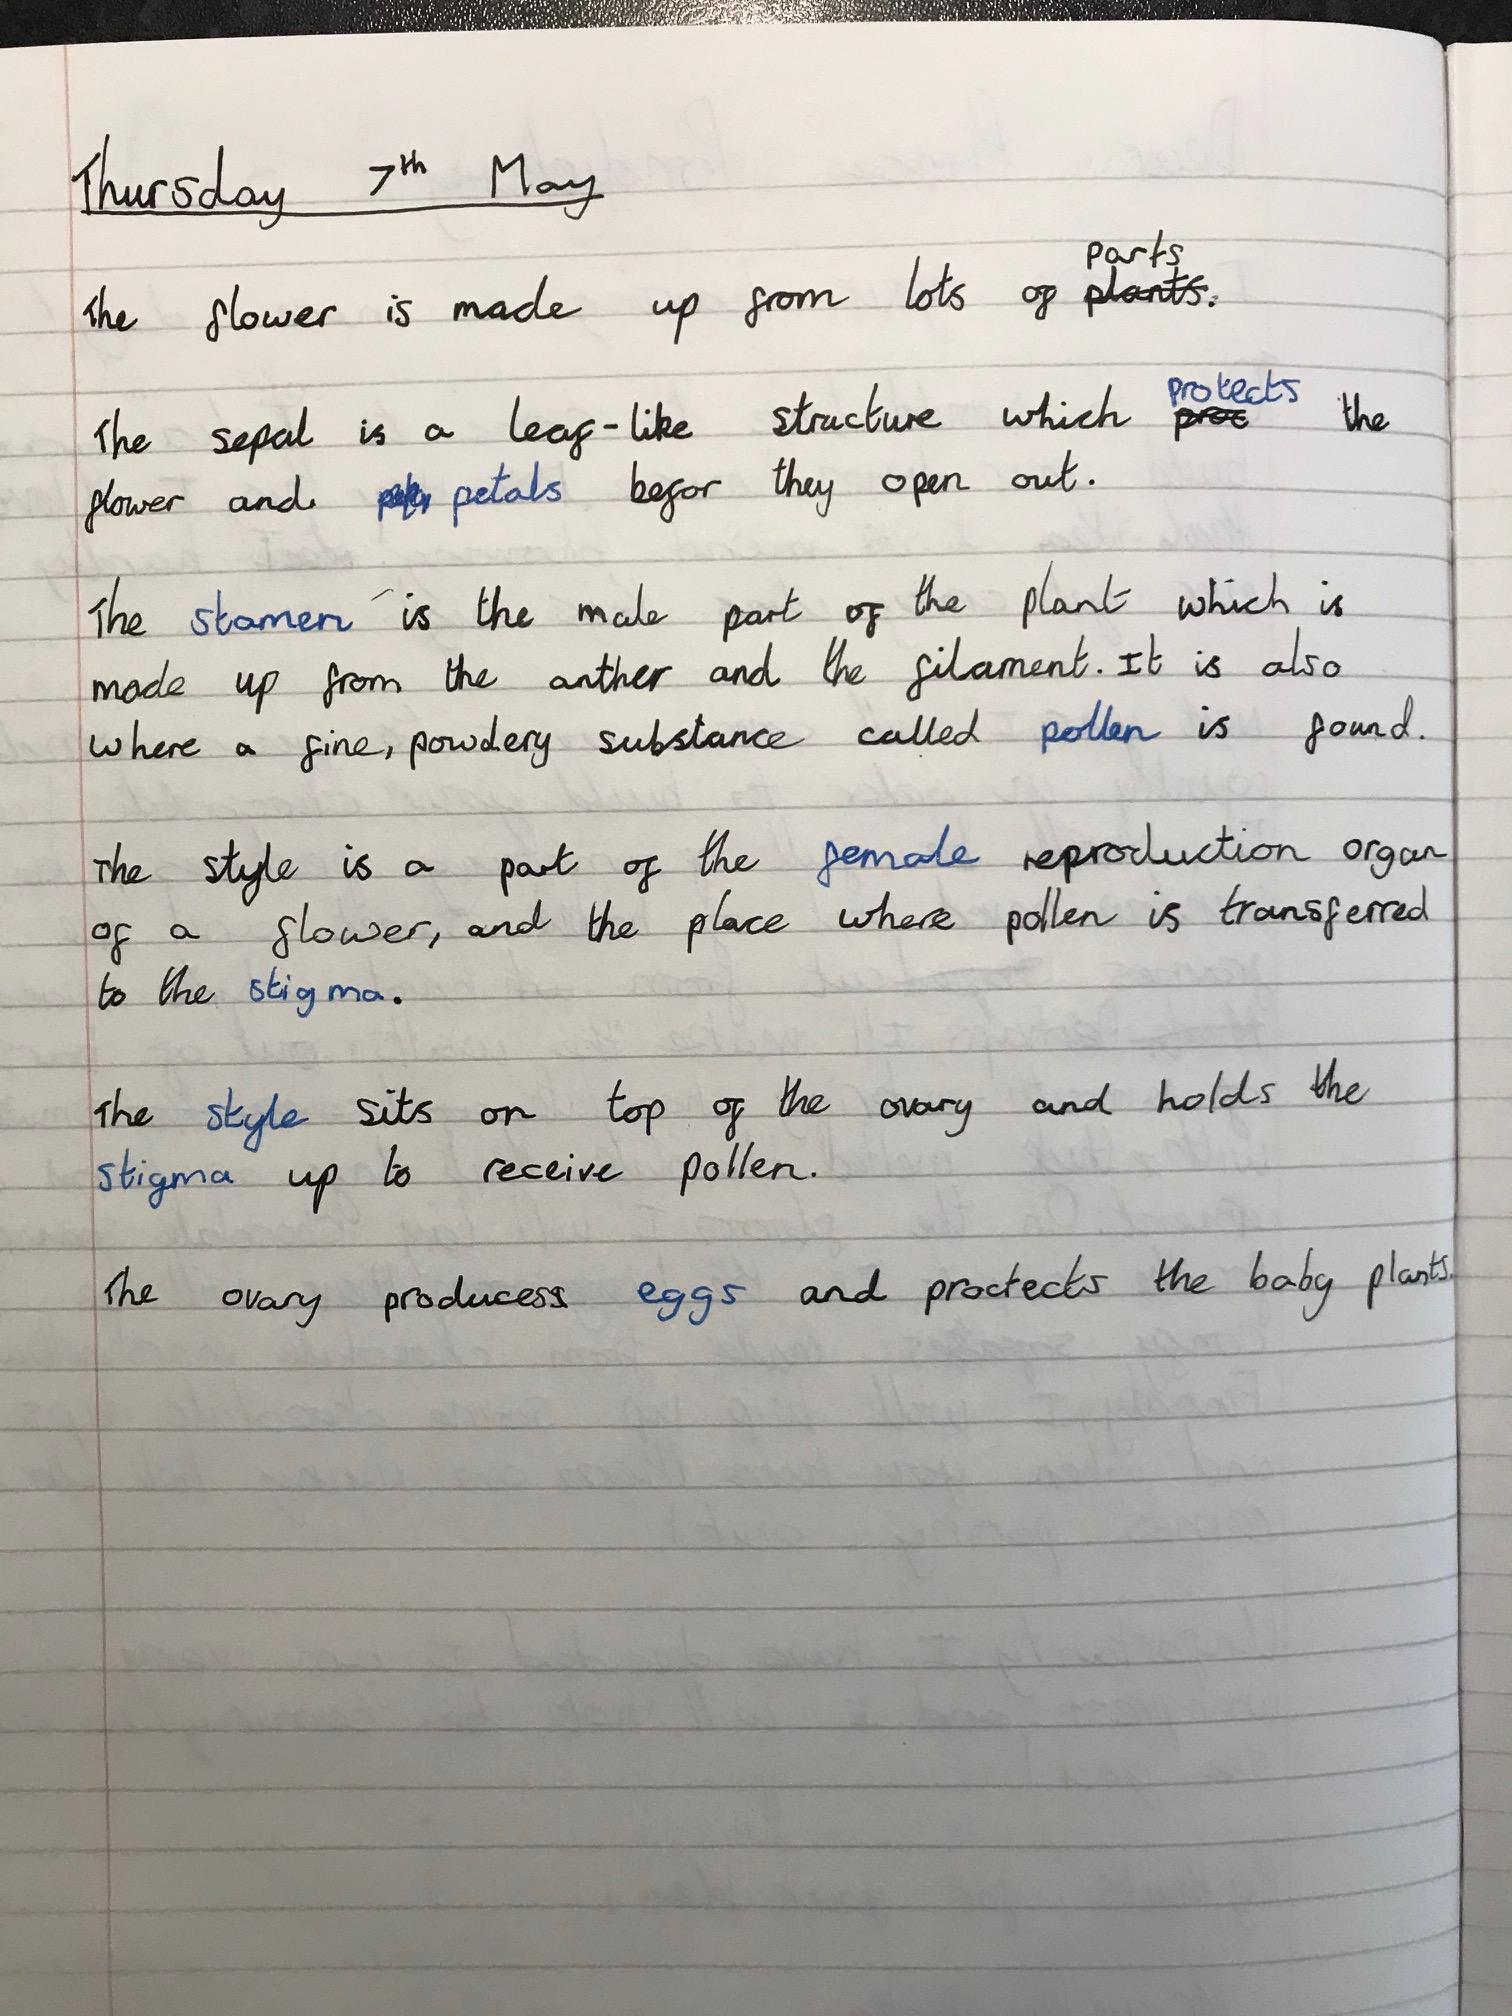 Thursday 7th May
The flower is made up from lots of parts plants.
The sepal is a leaf-like structure which protects proc the
flower and petals befor they open out.
The stamen is the male part of the plant which is
made up from the anther and the filament. It is also
where a fine, powdery substance called pollen is found.
The style is a part of the female reproduction organ
of a flower, and the place where pollen is transferred
to the stigma.
The style sits on top of the ovary and holds the
stigma up to receive pollen.
The ovary producess eggs and proctects the baby plants.